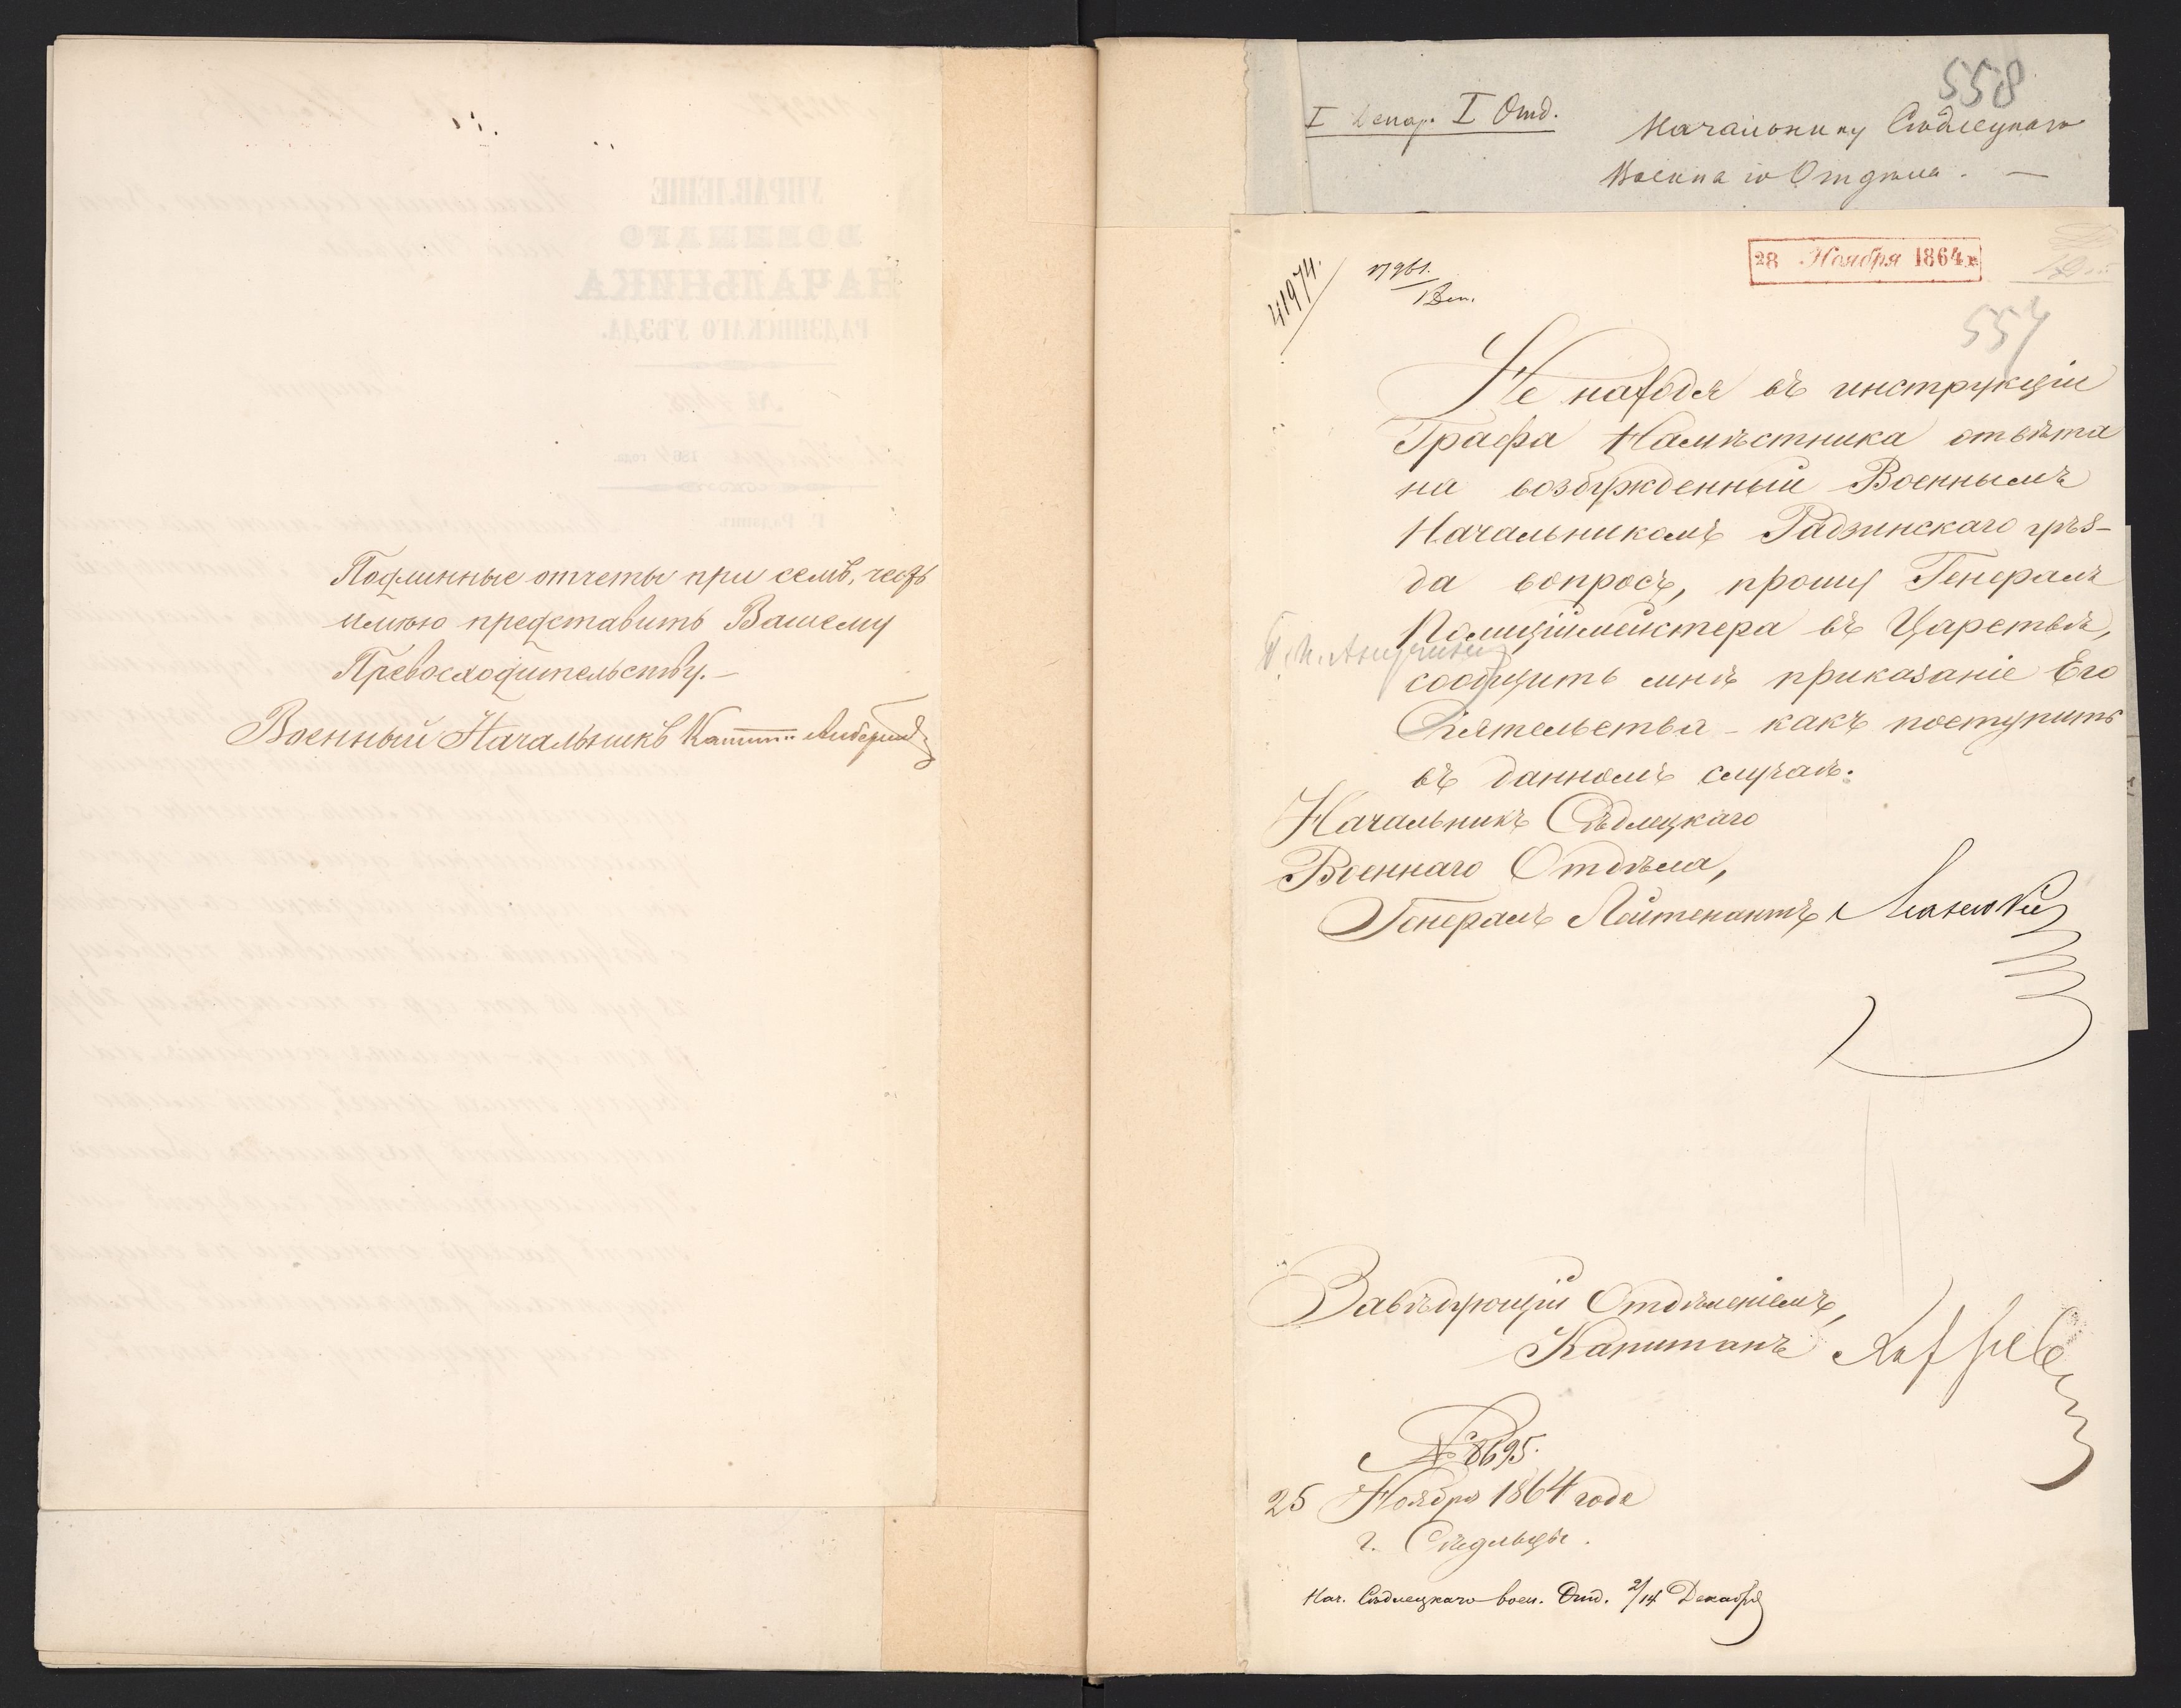 Подлинные отчеты при семъ, честь
имѣю представить Вашему
Превосходительству.—
Военный Начальникъ
558
I Депар. I Отд.
Начальнику Сѣдлецкаго
Военнаго Отдѣла. —
28 Ноября 1864 г.
41974.
557
Не находя въ инструкціи
Графа Намѣстника отвѣта
на возбужденный Военнымъ
Начальникомъ Радзинскаго уѣз-
да вопросъ, прошу Генералъ
Полиціймейстера въ Царствѣ,
сообщить мнѣ приказаніе Его
Сіятельства – какъ поступить
въ данномъ случаѣ.
Начальникъ Сѣдлецкаго
Военнаго Отдѣла,
Генералъ Лейтенантъ
Завѣдующій Отдѣленіемъ,
Капитанъ
№ 8695.
25 Ноября 1864 года
г. Сѣдльцы.
Нач. Сѣдлецкаго воен. Отд. 2/14 Декабря